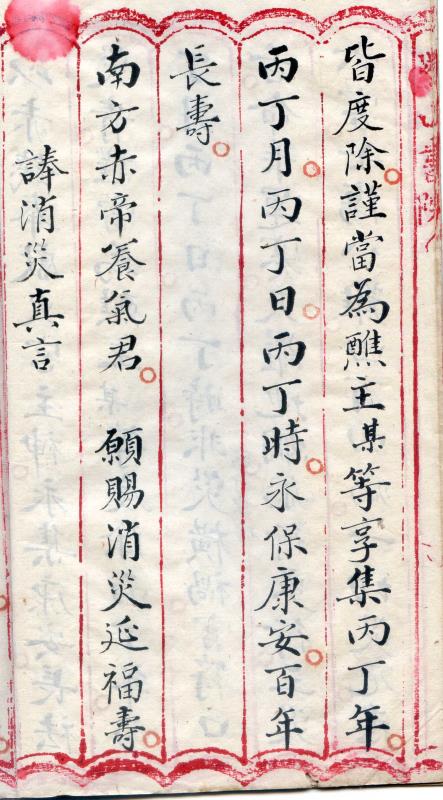 皆度除謹當為醮主某等享集丙丁年
丙丁月丙丁日丙丁時永保康安百年
長壽
南方赤帝養氣君 願賜消災延福壽
誦消災真言